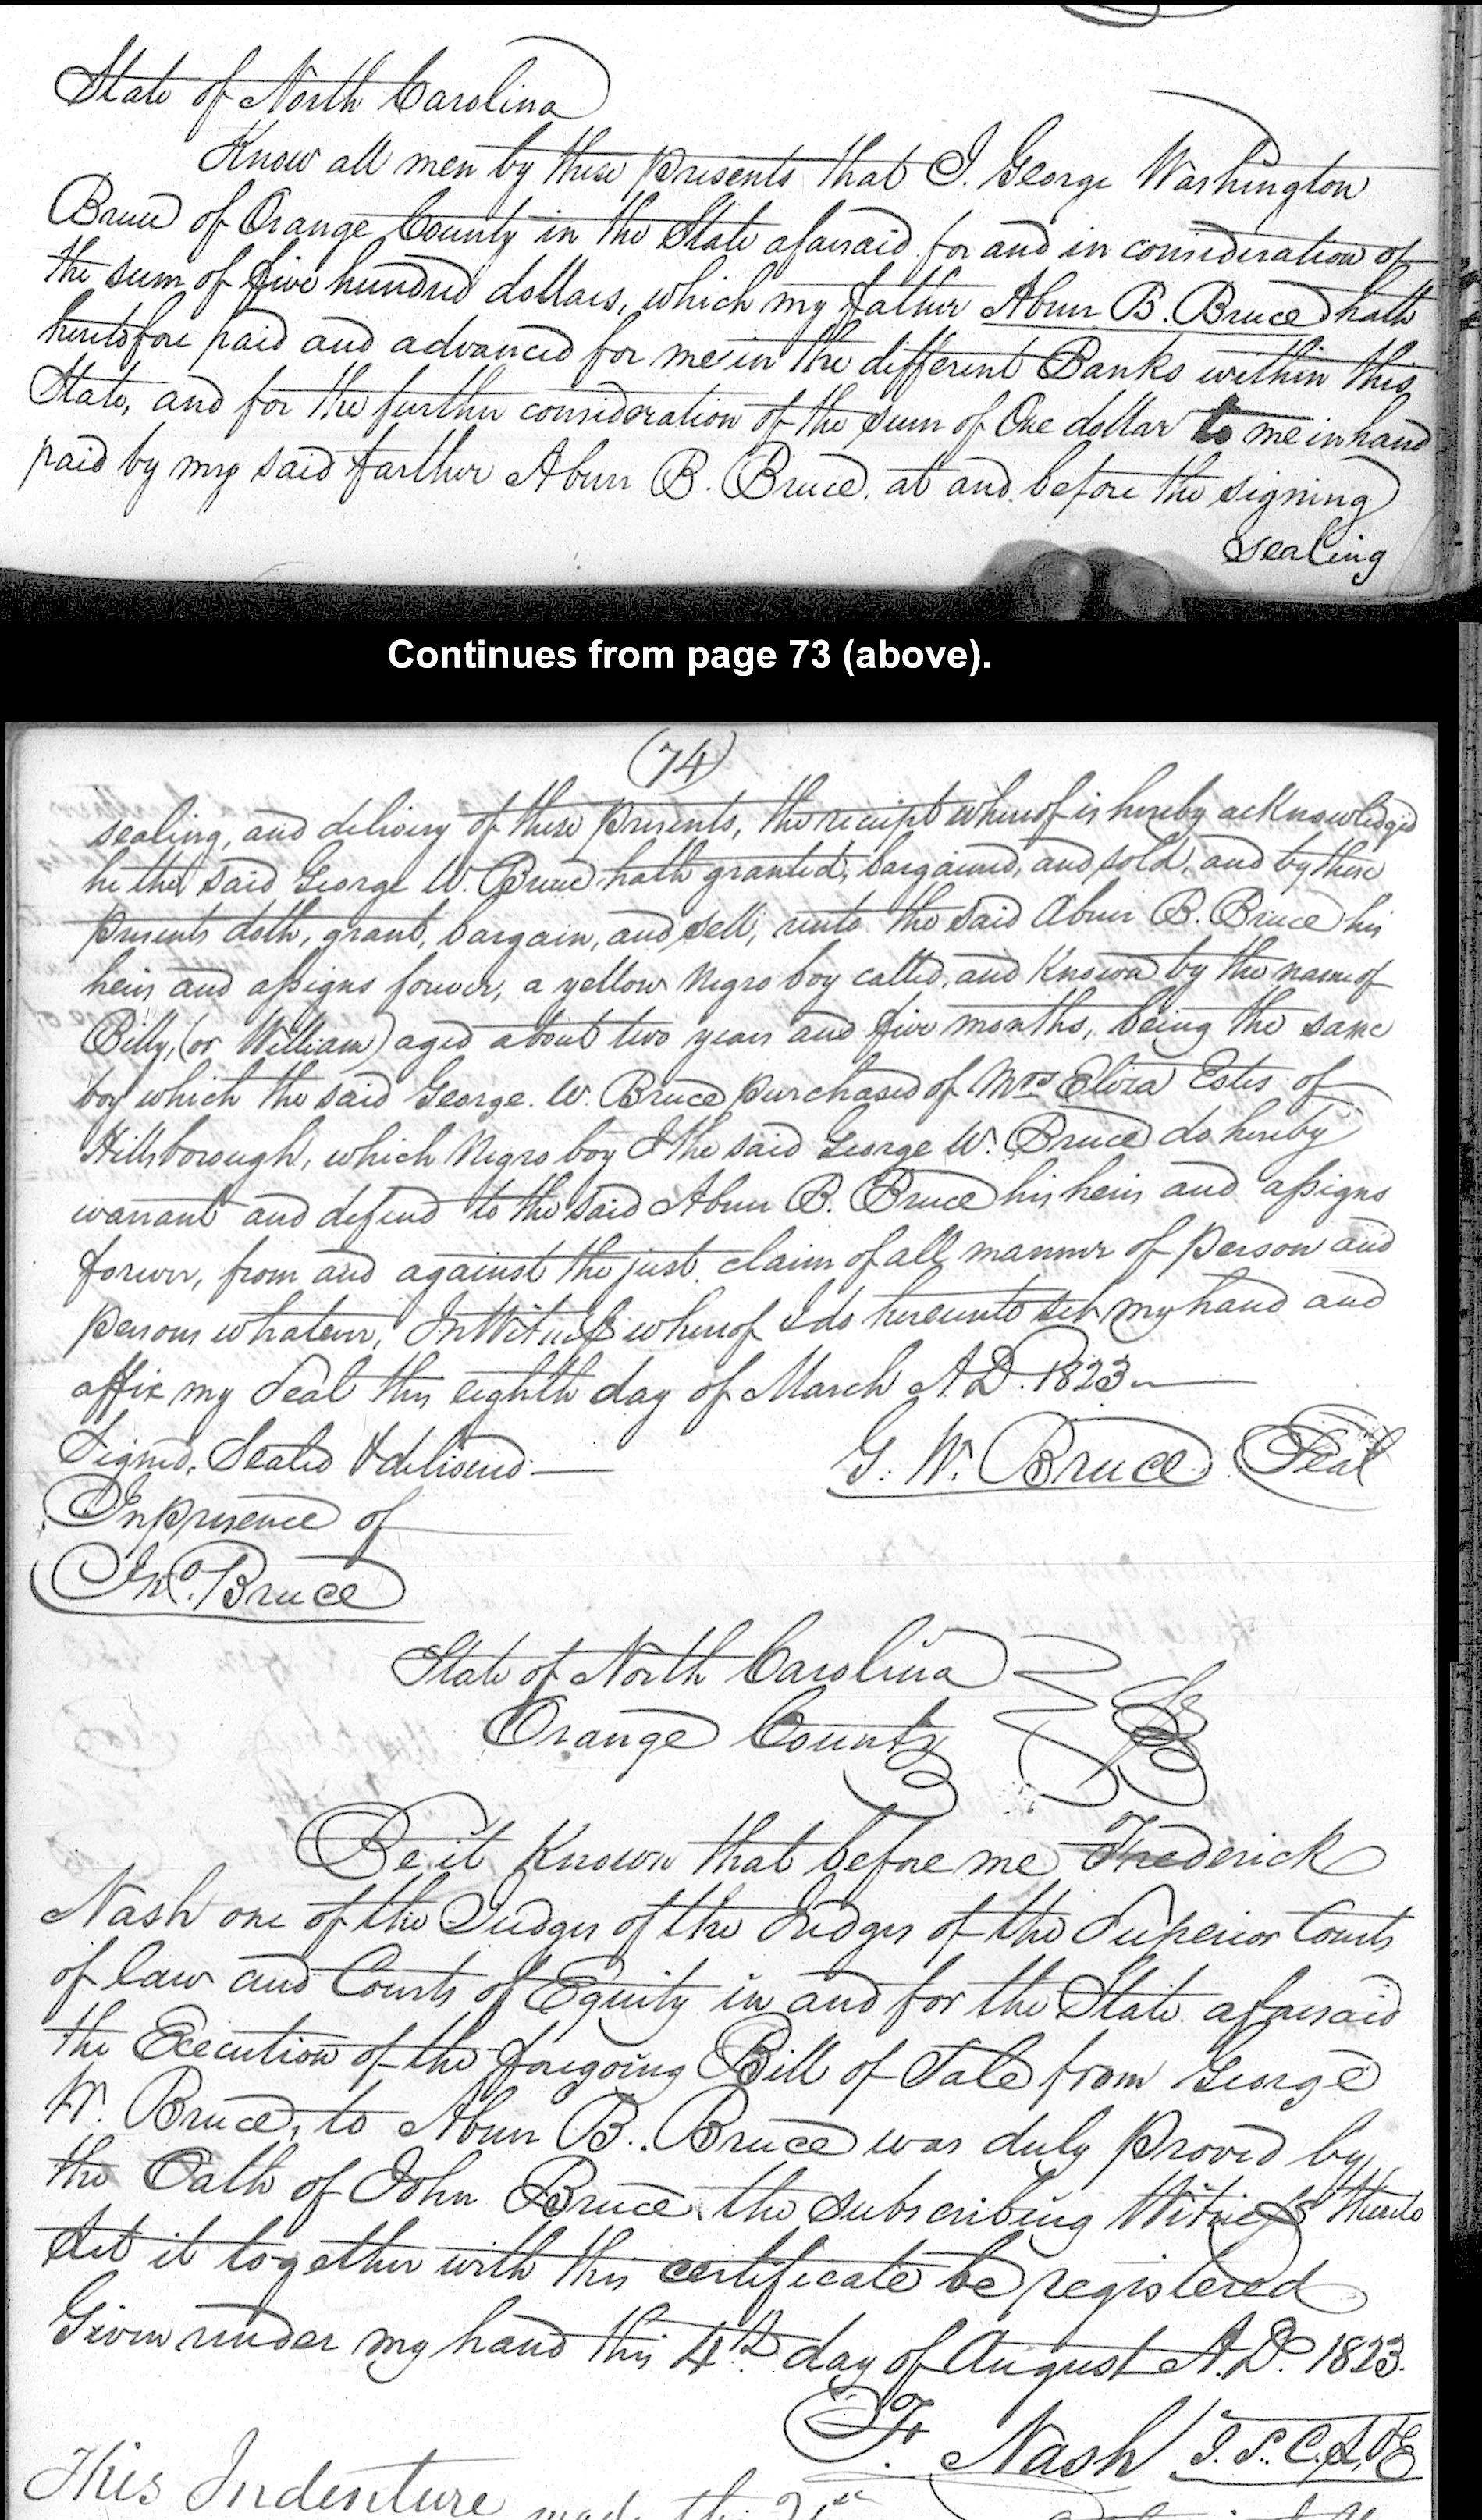 State of North Carolina
Know all men by these presents that I. George Washington
Bruce of Orange County in the State afaisaid for and in consideration of
the sum of five hundred dollars, which my father Abner B. Bruce hath
heretofore paid and advanced for me in the different Banks within this
State, and for the further consideration of the sum of One dollar to me in hand
paid by my said farther Abner B. Bruce, at and before the signing
sealing
Continues from page 73 (above).
(74)
sealing, and delivery of these presents, the receipt whereof is hereby acknowledged
he the said George W. Bruce hath granted, bargained, and sold, and by these
presents doth, grant, bargain, and sell, unto the said Abner B. Bruce his
heirs and assigns forever, a yellow Negro boy called, and Known by the name of
Billy, (or William) aged about two years and five months, being the same
boy which the said George. W. Bruce purchased of Mrs Eliza Estes of
Hillsborough, which Negro boy I the said George W. Bruce do hereby
warrant and defend to the said Abner B. Bruce his heirs and assigns
forever, from and against the just claim of all manner of person and
persons whatever, In Witness whereof I do hereunto set my hand and
affix my Seal this eighth day of March A.D. 1823
Signed, Sealed & delivered
G. W. Bruce Seal
In presence of
Jno. Bruce
State of North Carolina
Orange County
Be it Known that before me Frederick
Nash one of the Judges of the Judges of the Superior Courts
of law and Courts of Equity in and for the State afaisaid
the Execution of the foregoing Bill of Sale from George
W. Bruce, to Abner B. Bruce was duly proved by
the Oath of John Bruce the subscribing Witness thereto
Let it together with this certificate be registered
Given under my hand this 4th day of August A.D. 1823.
F. Nash J. S. C. L. & E
This Indenture made the